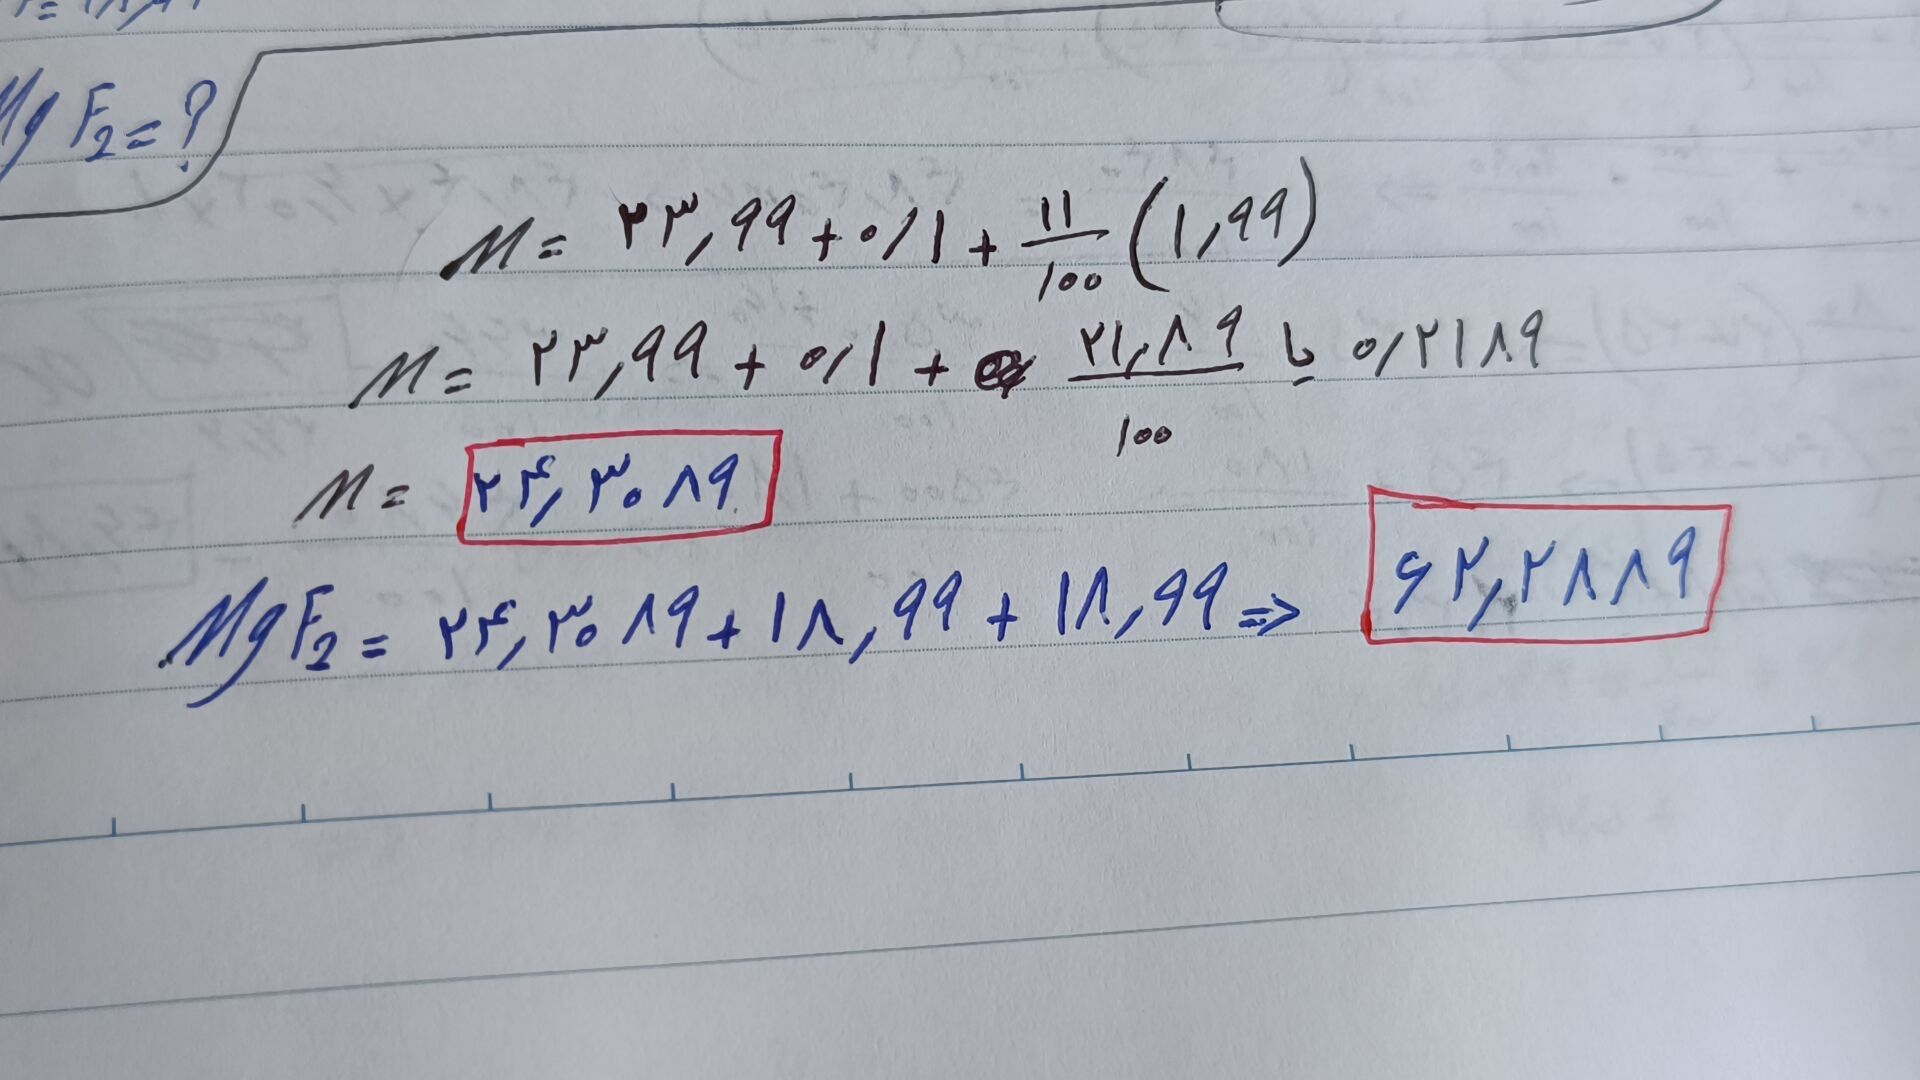 Mg F₂ = ?
M = ۲۳,۹۹ + ۰/۱ + ۱۱/۱۰۰ (۱,۹۹)
M = ۲۳,۹۹ + ۰/۱ + ۲۱,۸۹/۱۰۰ یا ۰/۲۱۸۹
M = ۲۴,۳۰۸۹
MgF₂ = ۲۴,۳۰۸۹ + ۱۸,۹۹ + ۱۸,۹۹ ⇒ ۶۲,۲۸۸۹